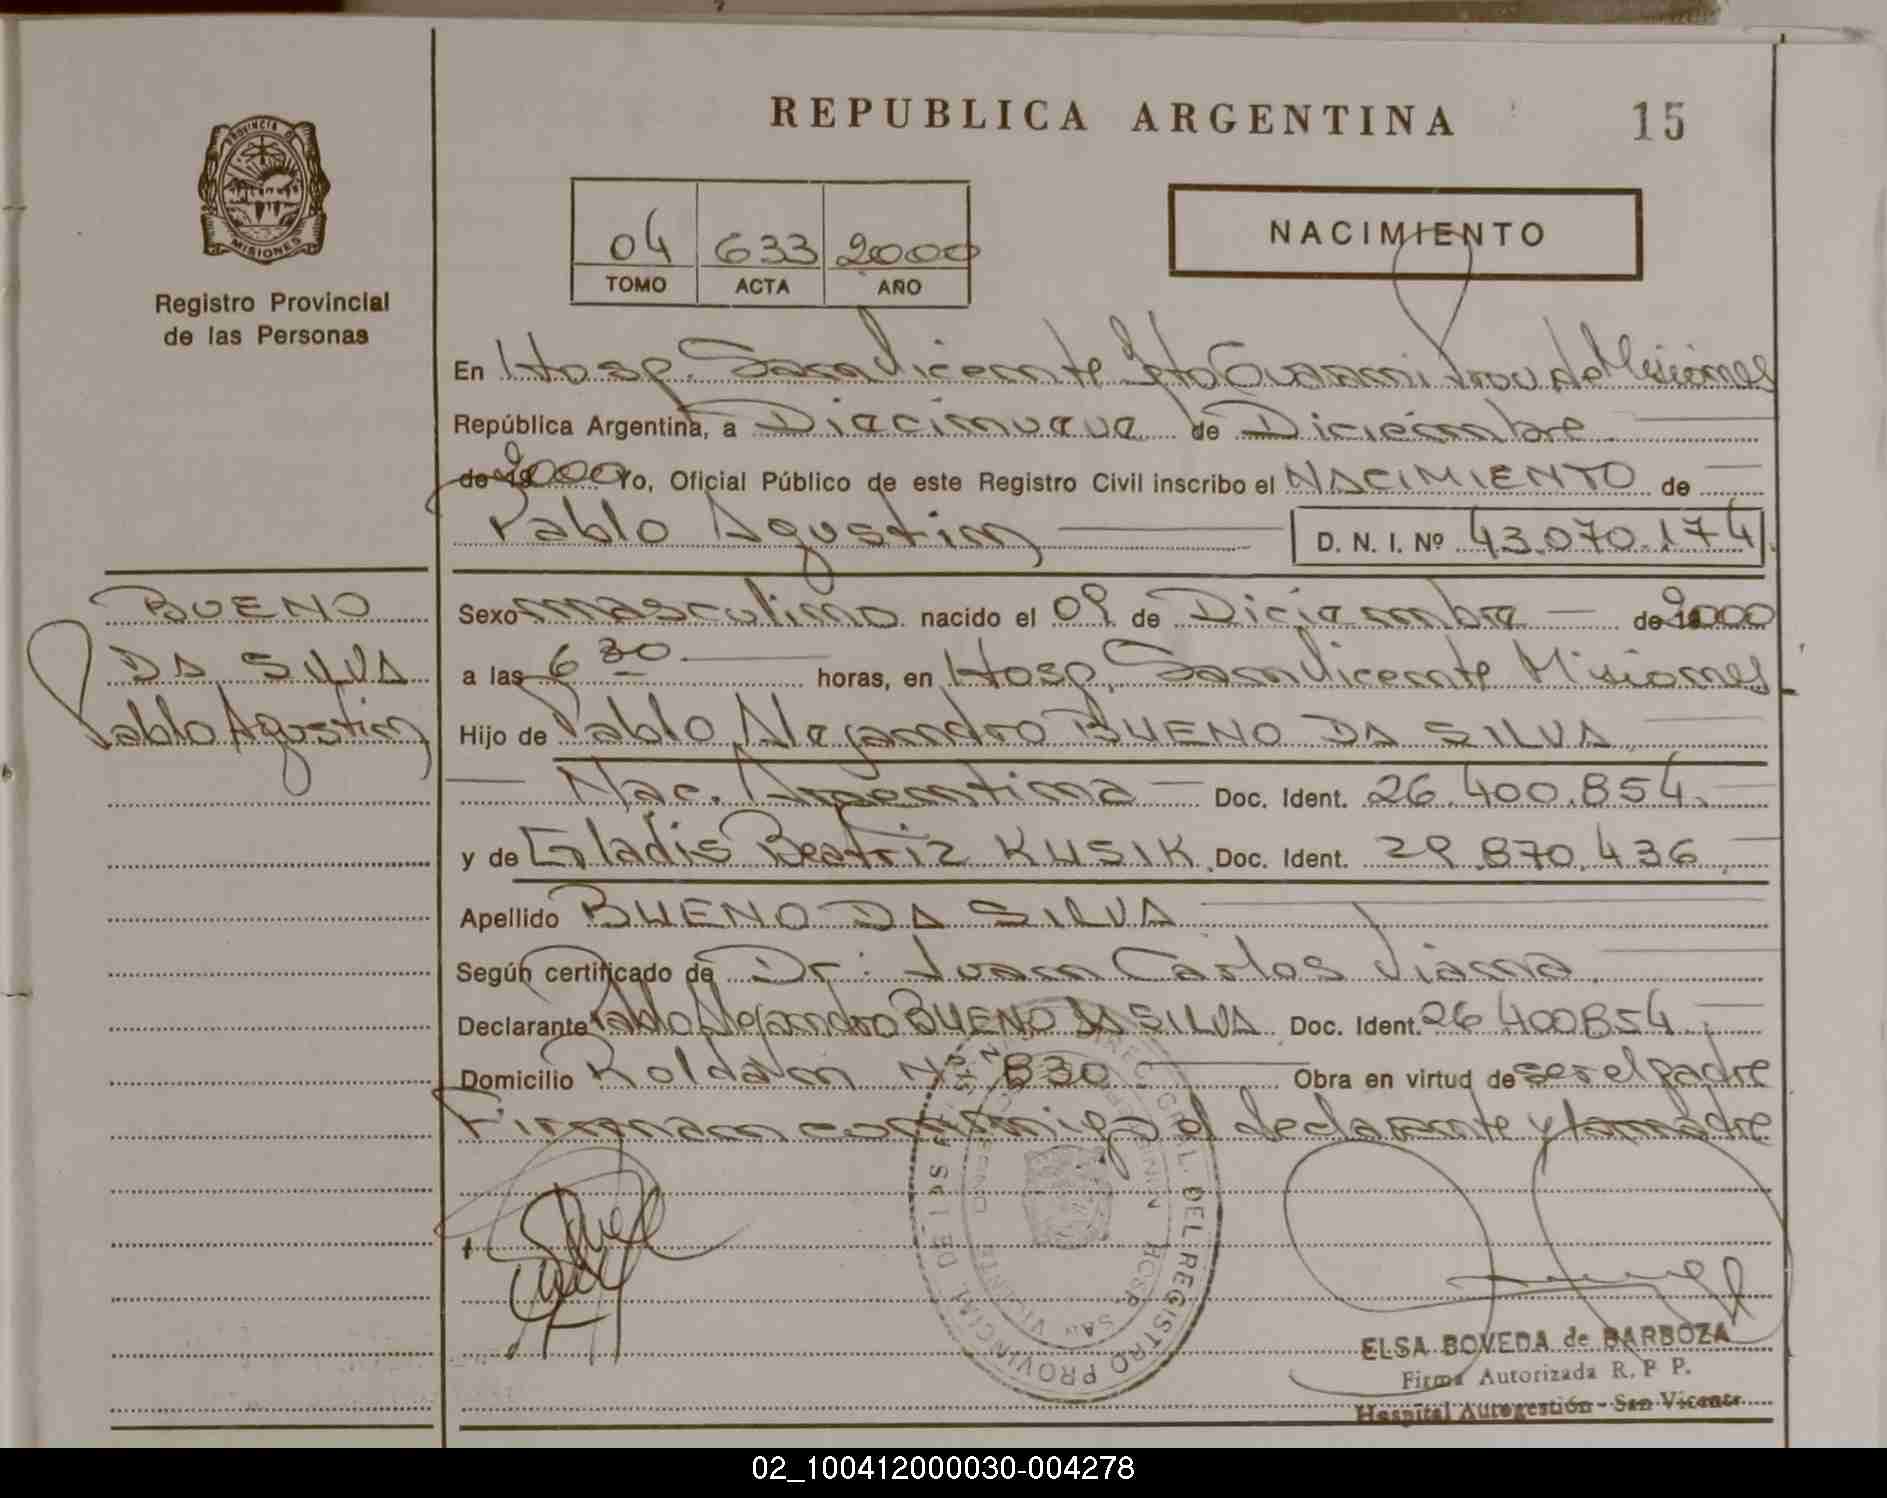 REPUBLICA ARGENTINA
15
PROVINCIA DE
MISIONES
Registro Provincial
de las Personas
04 633 2000
TOMO ACTA AÑO
NACIMIENTO
En Hosp. San Vicente Dpto Guarani Prov de Misiones
República Argentina, a Diecinueve de Diciembre
de 19 2000 Yo, Oficial Público de este Registro Civil inscribo el NACIMIENTO de
Pablo Agustin D. N. I. Nº 43.070.174
BUENO
DA SILVA
Pablo Agustin
Sexo masculino nacido el 09 de Diciembre de 2000
a las 6 30 horas, en Hosp. San Vicente Misiones
Hijo de Pablo Alejandro BUENO DA SILVA
Nac. Argentina Doc. Ident. 26.400.854
y de Gladis Beatriz KUSIK Doc. Ident. 29.870.436
Apellido BUENO DA SILVA
Según certificado de Dr. Juan Carlos Viana
Declarante Pablo Alejandro BUENO DA SILVA Doc. Ident. 26 400854
Domicilio Roldán Nº 830 Obra en virtud de ser el padre
Firman conmigo el declarante y la madre
GRAL. DEL REGISTRO PROVINCIAL DE
HOSP. SAN VICENTE
ELSA BOVEDA de BARBOZA
Firma Autorizada R. P. P.
Hospital Autogestión - San Vicente
02_100412000030-004278